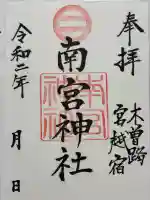 奉拝
木曽路
宮越宿
南宮神社
令和二年
月
日